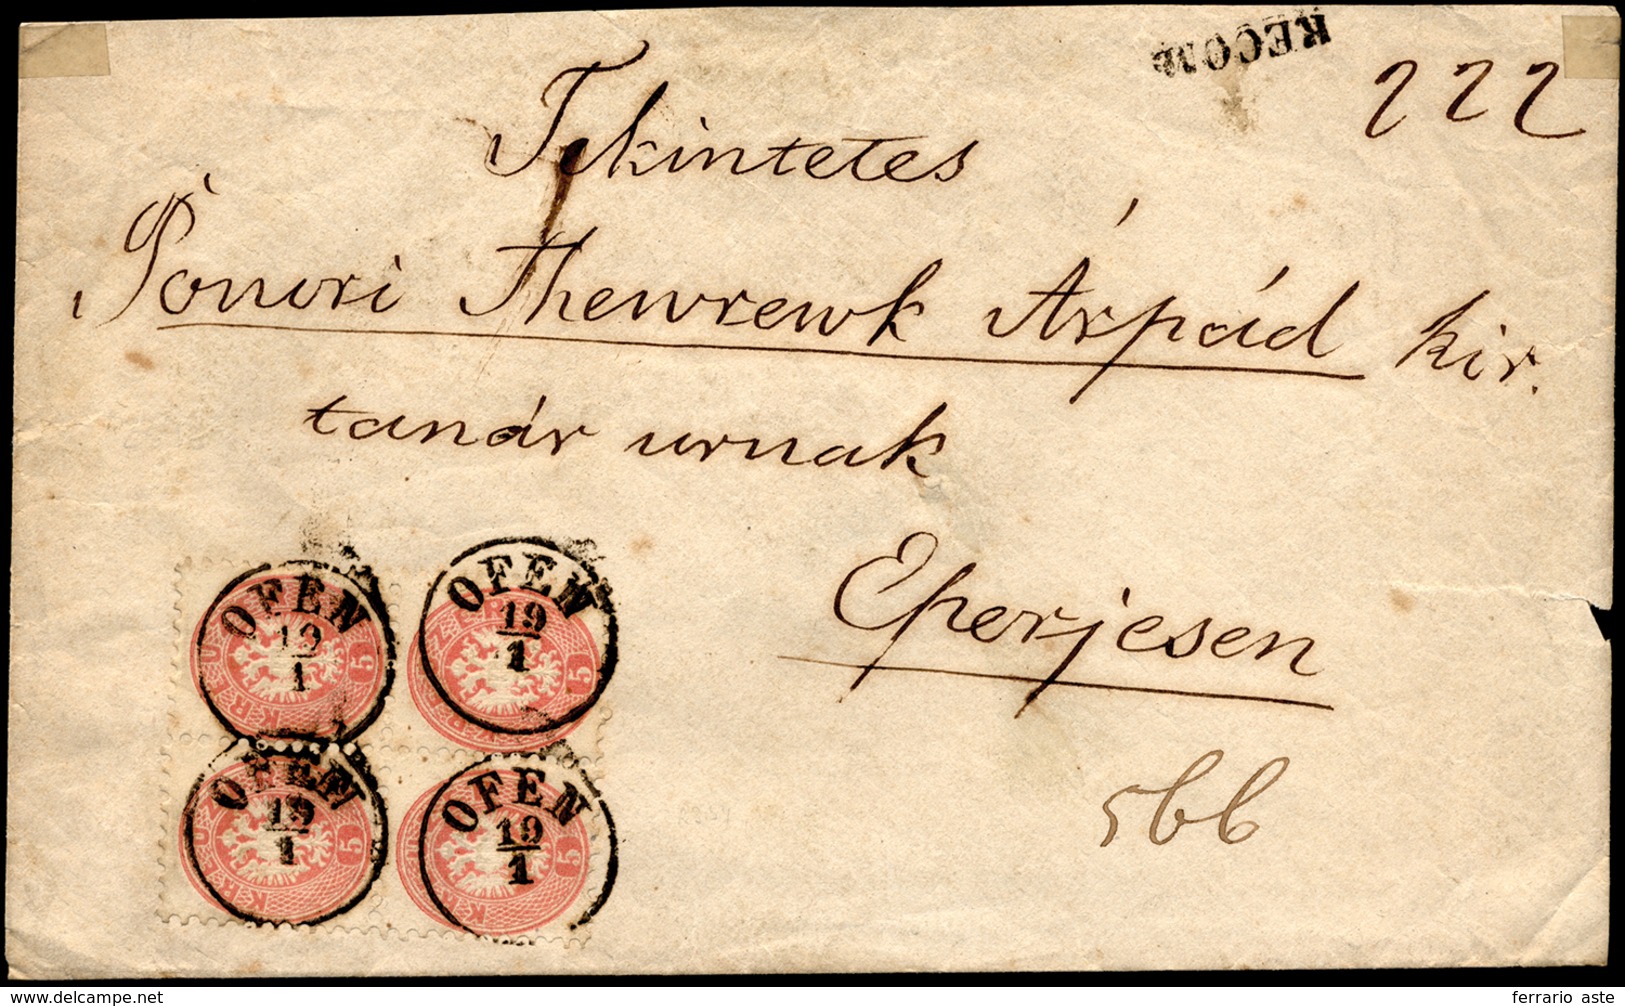 RECOM
222
Tekintetes
Ponori Thewrewk Árpád kir.
tanár urnak
Eperjesen
566
OFEN
19
1
OFEN
19
1
OFEN
19
1
OFEN
19
1
5
5
5
5
delcampe.net
ferrario aste